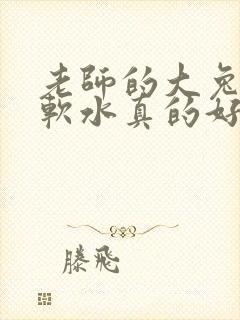 老師的大兔
軟水真的好
滕飛